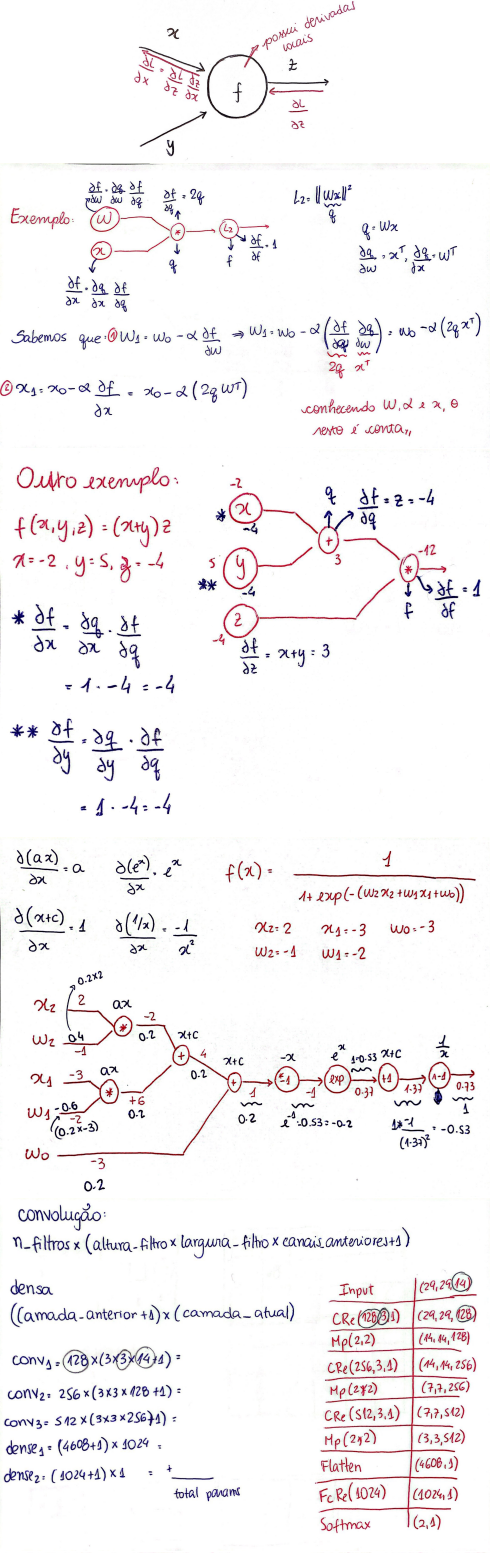 x
possui derivadas
locais
∂L/∂x = ∂L/∂z ∂z/∂x
f
z
∂L/∂z
y
∂f/∂w = ∂q/∂w ∂f/∂q
∂f/∂q = 2q
L2 = ||Wx||²
q
Exemplo:
W
*
L2
q = Wx
x
q
f
∂f/∂f = 1
∂q/∂w = xᵀ, ∂q/∂x = Wᵀ
∂f/∂x = ∂q/∂x ∂f/∂q
Sabemos que: ① W1 = W0 - α ∂f/∂w ⇒ W1 = W0 - α (∂f/∂q ∂q/∂w) = W0 - α (2q xᵀ)
2q xᵀ
② x1 = x0 - α ∂f/∂x = x0 - α (2q Wᵀ)
conhecendo W, α e x, o
resto é conta,,
Outro exemplo:
f(x,y,z) = (x+y)z
x=-2, y=5, z=-4
* ∂f/∂x = ∂q/∂x . ∂f/∂q
= 1 . -4 = -4
** ∂f/∂y = ∂q/∂y . ∂f/∂q
= 1 . -4 = -4
-2
* x
-4
q
∂f/∂q = z = -4
+
3
5
** y
-4
-12
*
f
∂f/∂f = 1
z
-4
∂f/∂z = x+y = 3
∂(ax)/∂x = a
∂(eˣ)/∂x = eˣ
f(x) = 1/(1+exp(-(w2x2+w1x1+w0)))
∂(x+c)/∂x = 1
∂(1/x)/∂x = -1/x²
x2=2 x1=-3 w0=-3
w2=-1 w1=-2
0.2x2
x2 2 ax
*
-2
0.2
w2 0.4
-1
x+c
+
4
0.2
x1 -3 ax
*
+6
0.2
w1 -0.6
-2
(0.2x-3)
x+c
+
1
0.2
-x
*-1
-1
e⁻¹.-0.53=-0.2
eˣ
exp
1.-0.53
0.37
x+c
+1
1.37
1* -1/(1.37)² = -0.53
1/x
0.73
1
w0 -3
0.2
convolução:
n_filtros x (altura_filtro x largura_filtro x canais_anteriores+1)
densa
((camada_anterior+1) x (camada_atual)
conv1 = 128 x (3x3x14+1) =
conv2 = 256 x (3x3x128+1) =
conv3 = 512 x (3x3x256+1) =
dense1 = (4608+1) x 1024 =
dense2 = (1024+1) x 1 = +
total params
Input (29,29,14)
CRe(128,3,1) (29,29,128)
Mp(2,2) (14,14,128)
CRe(256,3,1) (14,14,256)
Mp(2x2) (7,7,256)
CRe(512,3,1) (7,7,512)
Mp(2x2) (3,3,512)
Flatten (4608,1)
FcRe(1024) (1024,1)
Softmax (2,1)